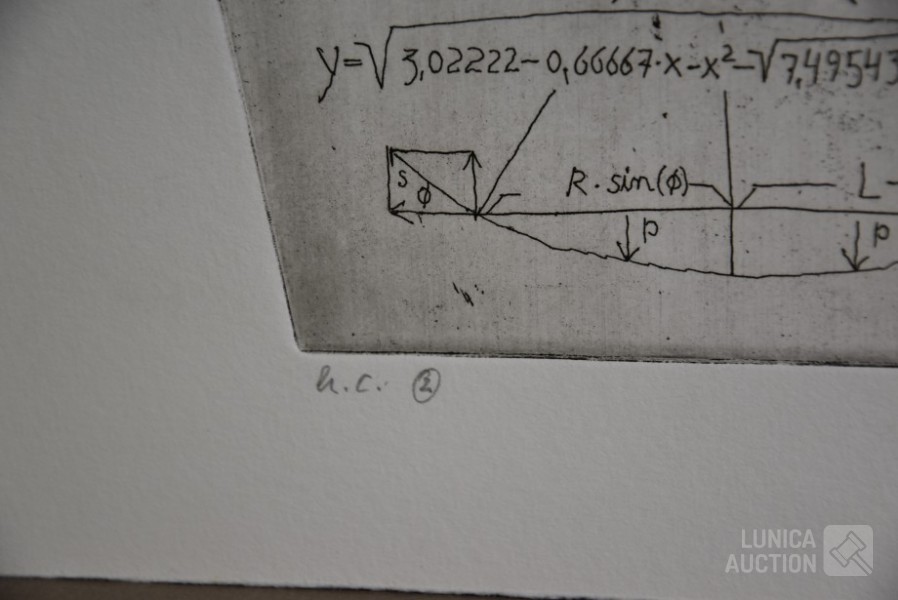 y=√3,02222-0,66667·x-x²-√7,49543
s
ϕ
R·sin(ϕ)
L
p
p
h.c. ②
LUNICA
AUCTION